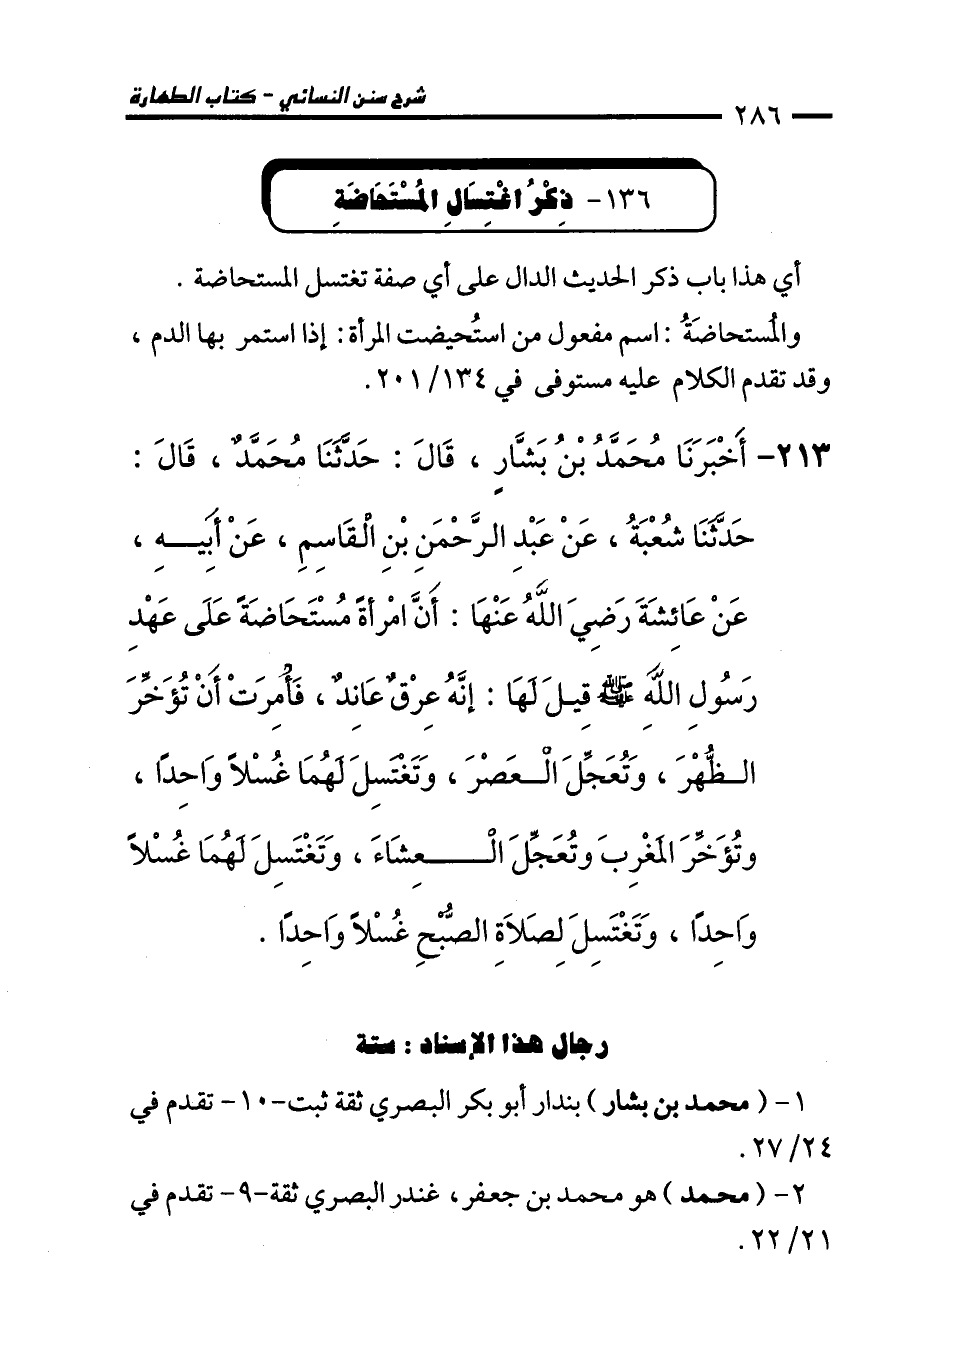 شرح سنن النسائي - كتاب الطهارة
٢٨٦
١٣٦- ذِكْرُ اغْتِسَالِ المُسْتَحَاضَةِ
أي هذا باب ذكر الحديث الدال على أي صفة تغتسل المستحاضة .
والمُستحاضَةُ : اسم مفعول من استُحيضت المرأة : إذا استمر بها الدم ،
وقد تقدم الكلام عليه مستوفى في ١٣٤/ ٢٠١.
٢١٣- أَخْبَرَنَا مُحَمَّدُ بْنُ بَشَّارٍ ، قَالَ : حَدَّثَنَا مُحَمَّدٌ ، قَالَ :
حَدَّثَنَا شُعْبَةُ ، عَنْ عَبْدِ الرَّحْمَنِ بْنِ الْقَاسِمِ ، عَنْ أَبِيـهِ ،
عَنْ عَائِشَةَ رَضِيَ اللَّهُ عَنْهَا : أَنَّ امْرأةً مُسْتَحَاضَةً عَلَى عَهْدِ
رَسُولِ اللَّهِ ﷺ قِيلَ لَهَا : إِنَّهُ عِرْقٌ عَانِدٌ ، فَأُمِرَتْ أَنْ تُؤَخِّرَ
الـظُّهْرَ ، وَتُعَجِّلَ الْـعَصْرَ ، وَتَغْتَسِلَ لَهُمَا غُسْلاً وَاحِدًا ،
وتُؤَخِّرَ المَغْرِبَ وتُعَجِّلَ الْـعِشَاءَ ، وَتَغْتَسِلَ لَهُمَا غُسْلاً
وَاحِدًا ، وَتَغْتَسِلَ لِصَلاَةِ الصُّبْحِ غُسْلاً وَاحِدًا .
رجال هذا الإسناد : ستة
١- ( محمد بن بشار ) بندار أبو بكر البصري ثقة ثبت-١٠- تقدم في
٢٤/ ٢٧.
٢- ( محمد ) هو محمد بن جعفر، غندر البصري ثقة-٩- تقدم في
٢١/ ٢٢.